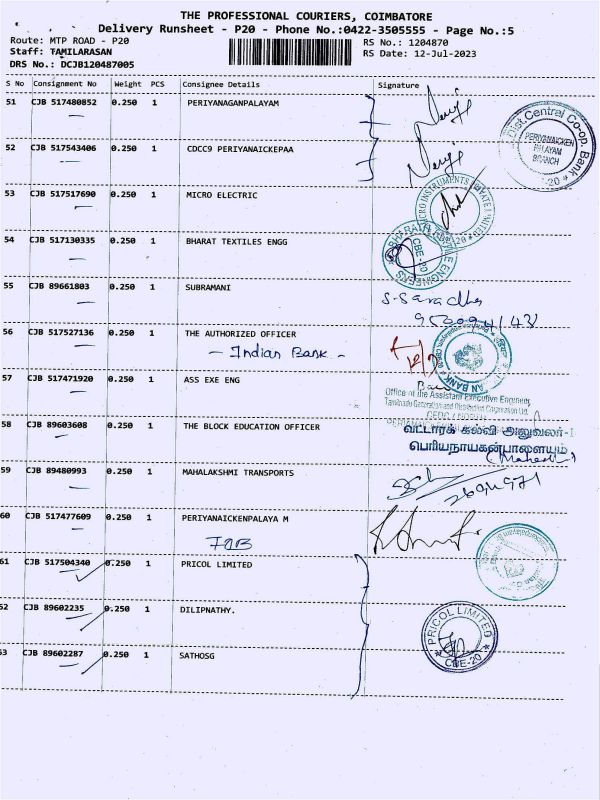 THE PROFESSIONAL COURIERS, COIMBATORE
Delivery Runsheet - P20 - Phone No.:0422-3505555 - Page No.:5
Route: MTP ROAD - P20
RS No.: 1204870
Staff: TAMILARASAN
RS Date: 12-Jul-2023
DRS No.: DCJB120487005
S No Consignment No Weight PCS Consignee Details Signature
51 CJB 517480852 0.250 1 PERIYANAGANPALAYAM
52 CJB 517543406 0.250 1 CDCC9 PERIYANAICKEPAA
Dist.Central Co-op. Bank
PERIYANAICKEN
PALAYAM
BRANCH
53 CJB 517517690 0.250 1 MICRO ELECTRIC
54 CJB 517130335 0.250 1 BHARAT TEXTILES ENGG
CBE-20
55 CJB 89661803 0.250 1 SUBRAMANI
S-Saradha
56 CJB 517527136 0.250 1 THE AUTHORIZED OFFICER
- Indian Bank -
57 CJB 517471920 0.250 1 ASS EXE ENG
Office of the Assistant Executive Engineer
Tamilnadu Generation and Distribution Corporation Ltd.
58 CJB 89603608 0.250 1 THE BLOCK EDUCATION OFFICER
வட்டாரக் கல்வி அலுவலர்-I
பெரியநாயக்கன்பாளையம்
59 CJB 89480993 0.250 1 MAHALAKSHMI TRANSPORTS
60 CJB 517477609 0.250 1 PERIYANAICKENPALAYA M
IOB
61 CJB 517504340 0.250 1 PRICOL LIMITED
62 CJB 89602235 0.250 1 DILIPNATHY.
PRICOL LIMITED
CBE-20
63 CJB 89602287 0.250 1 SATHOSG